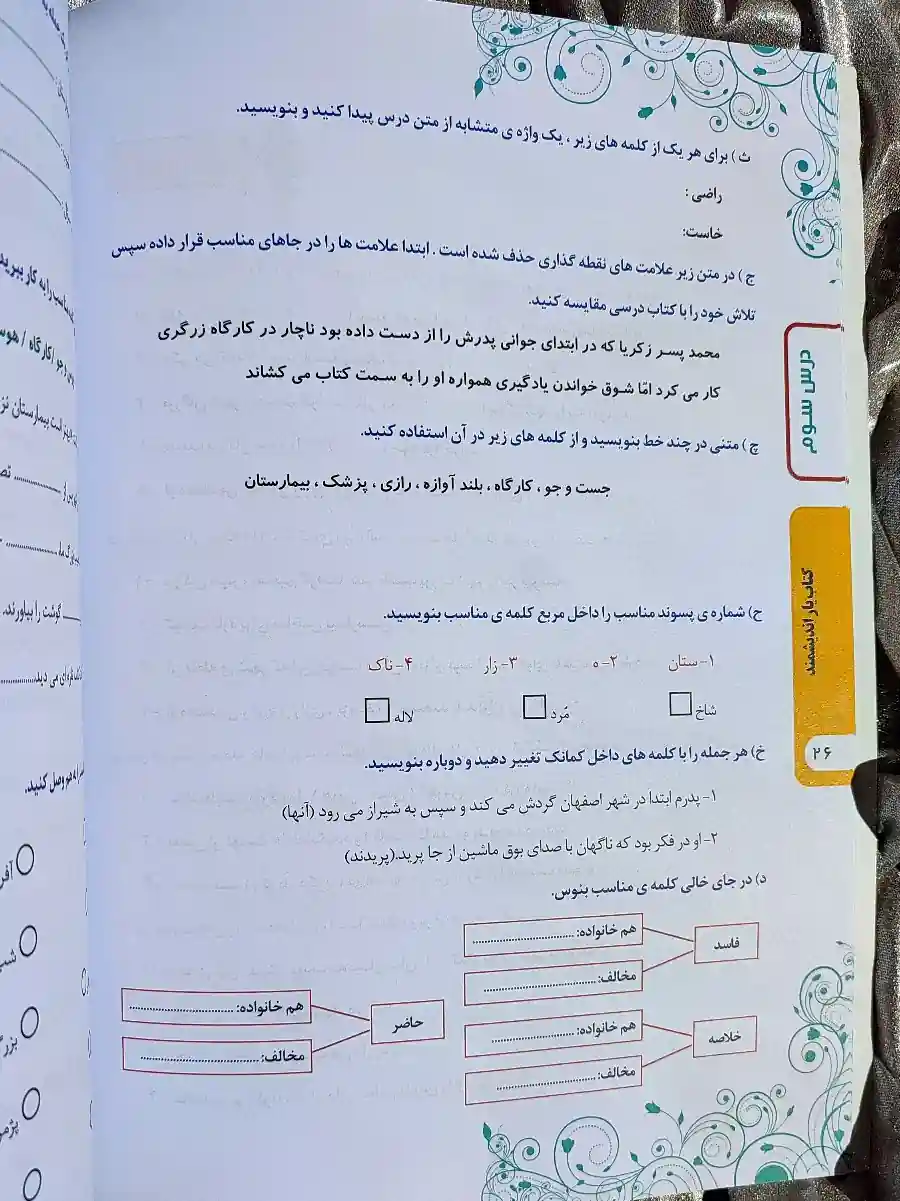 ث) برای هر یک از کلمه های زیر ، یک واژه ی متشابه از متن درس پیدا کنید و بنویسید.
راضی :
خاست:
ج) در متن زیر علامت های نقطه گذاری حذف شده است . ابتدا علامت ها را در جاهای مناسب قرار داده سپس
تلاش خود را با کتاب درسی مقایسه کنید.
محمد پسر زکریا که در ابتدای جوانی پدرش را از دست داده بود ناچار در کارگاه زرگری
کار می کرد امّا شوق خواندن یادگیری همواره او را به سمت کتاب می کشاند
چ) متنی در چند خط بنویسید و از کلمه های زیر در آن استفاده کنید.
جست و جو ، کارگاه ، بلند آوازه ، رازی ، پزشک ، بیمارستان
ح) شماره ی پسوند مناسب را داخل مربع کلمه ی مناسب بنویسید.
۱- ستان ۲- ه ۳- زار ۴- ناک
شاخ مُرد لاله
خ) هر جمله را با کلمه های داخل کمانک تغییر دهید و دوباره بنویسید.
۱- پدرم ابتدا در شهر اصفهان گردش می کند و سپس به شیراز می رود (آنها)
۲- او در فکر بود که ناگهان با صدای بوق ماشین از جا پرید.(پریدند)
د) در جای خالی کلمه ی مناسب بنوس.
فاسد
هم خانواده: ..............................
مخالف: ..............................
خلاصه
هم خانواده: ..............................
مخالف: ..............................
حاضر
هم خانواده: ..............................
مخالف: ..............................
درس سوم
کتاب یار اندیشمند
۲۶
مناسب را به کار ببرید
جو / کارگاه /
است بیمارستان
گوشت را بیاورند.
می دید
وصل کنید.